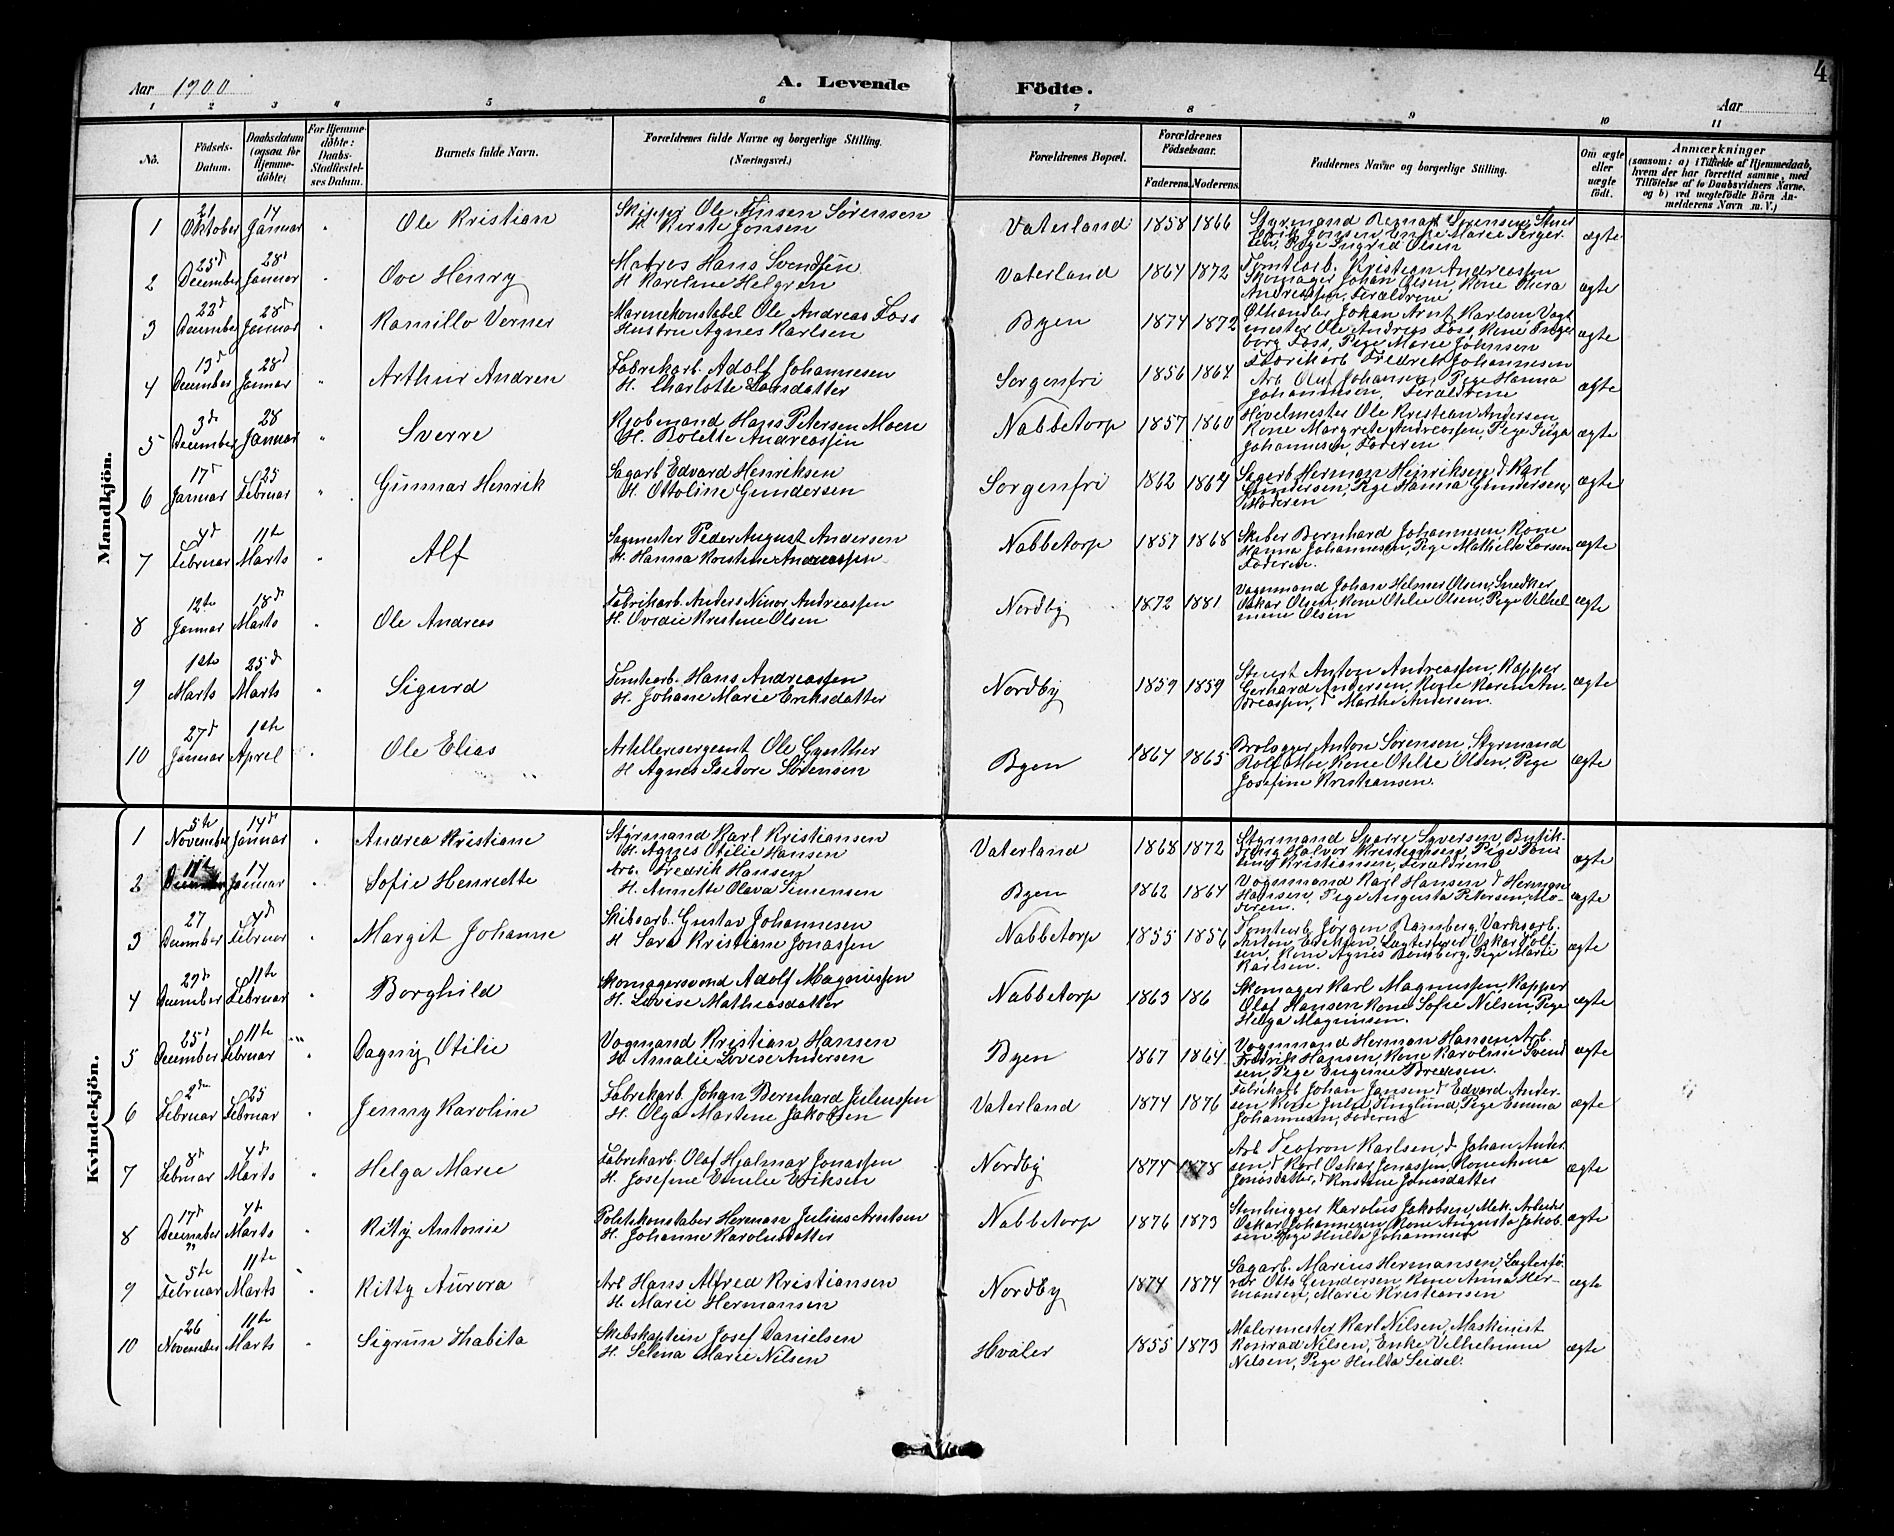 4
Aar 1900
A. Levende Födte.
Aar
1 2 3 4 5 6 7 8 9 10 11
No.
Födsels-Datum.
Daabsdatum (ogsaa for Hjemme-döbte)
For Hjemme-döbte: Daabs-Stadfæstel-ses Datum.
Barnets fulde Navn.
Forældrenes fulde Navne og borgerlige Stilling. (Næringsvei.)
Forældrenes Bopæl.
Forældrenes Födselsaar.
Faderens. Moderens.
Faddernes Navne og borgerlige Stilling.
Om ægte eller uægte födt.
Anmærkninger
(saasom: a) i Tilfælde af Hjemmedaab, hvem der har forrettet samme, med Tilföielse af to Daabsvidners Navne, og b) ved uægtefödte Börn An-melderens Navn m. V.)
Mandkjön.
1 21 Oktober 14 Januar " Ole Kristian
Skipper Ole Sørensen
H. Kerste Jonsen
Vaterland 1858 1866
Styrmand Sørensen,
Jonsen, Enke Marie
Pige Ingrid Olsen
ægte
2 25d December 28d Januar " Ove Henry
Matros Hans Svendsen
H. Karoline Helgren
Vaterland 1864 1872
Tomtearb. Kristian Andreassen
Skomager Johan Olsen, Kone Thora
Andreassen, Forældrene
ægte
3 22d December 28d Januar " Kamillo Verner
Marinekonstabel Ole Andreas Foss
Hustru Agnes Karlsen
Byen 1874 1872
Ølhandler Johan Arnt Karlsen, Vagt
mester Ole Andreas Foss, Kone Inge
borg Foss, Pige Marie Johnsen
ægte
4 13d December 28d Januar " Arthur Andren
Fabrikarb. Adolf Johannesen
H. Charlotte Larsdatter
Sorgenfri 1856 1864
Fabrikarb Fredrik Johannesen
Arb. Oluf Johansen, Pige Hanna
Johannesen, Forældrene
ægte
5 3d December 28 Januar " Sverre
Kjøbmand Hans Petersen Moen
H. Bolette Andreassen
Nabbetorp 1857 1860
Høvelmester Ole Kristian Andersen,
Kone Margrete Andreassen, Pige Inga
Johannesen, Faderen
ægte
6 17d Januar 25 Februar " Gunnar Henrik
Sagarb Edvard Henriksen
H. Ottoline Gundersen
Sorgenfri 1862 1864
Sagarb Herman Henriksen, d Karl
Gundersen, Pige Hanna Gundersen,
Moderen
ægte
7 4d Februar 11te Marts " Alf
Sagmester Peder August Andersen
H. Hanna Kristine Andreassen
Nabbetorp 1857 1868
Skriber Bernhard Johannesen, Kone
Hanna Johannesen, Pige Mathilde Larsen
Faderen.
ægte
8 12te Januar 18d Marts " Ole Andreas
Fabrikarb. Anders Andreassen
H. Ovidie Kristine Olsen
Nordby 1872 1881
Vognmand Johan Helmer Olsen, Snedker
Oskar Olsen, Kone Otilie Olsen, Pige Vilhel
mine Olsen
ægte
9 1ste Marts 25d Marts " Sigurd
Tomtearb. Hans Andreassen
H. Johane Marie Eriksdatter
Nordby 1859 1859
Stuert Anton Andreassen, Kapper
Gerhard Andersen, Kone Karen An-
dreassen, d Marthe Andersen.
ægte
10 27d Januar 1ste April " Ole Elias
Artillerisergeant Ole Gynther
H Agnes Isidore Sørensen
Byen 1864 1865
Brolægger Anton Sørensen, Styrmand
Rolf Moe, Kone Otilde Olsen, Pige
Josefine Kristiansen.
ægte
Kvindekjön.
1 5te November 14d Januar " Andrea Kristiane
Styrmand Karl Kristiansen
H. Agnes Otilie Hansen
Vaterland 1868 1872
Styrmand Sverre Syversen, Butik-
Halvor Kristiansen, Pige
Kristiansen, Forældrene
ægte
2 11te December 14 Januar " Sofie Henriette
Arb. Fredrik Hansen
H. Annette Olava Simensen
Byen 1862 1864
Vognmand Karl Hansen, d Herman
Hansen, Pige Augusta Petersen, Mo-
deren.
ægte
3 27 December 4d Februar " Margit Johanne
Skibsarb. Gustav Johannesen
H Sara Kristiane Jonassen
Nabbetorp 1855 1856
Tomtearb Jørgen Ramberg, Værksarb.
Anton Eriksen, Oskar
sen, Kone Agnes Ramberg, Pige Marie
Karlsen.
ægte
4 29d December 11te Februar " Borghild
Skomagersvend Adolf Magnussen
H. Lovise Mathiasdatter
Nabbetorp 1863 186
Skomager Karl Magnussen, Kapper
Olaf Hansen, Kone Sofie Nilsen, Pige
Helga Magnussen.
ægte
5 25d December 11te Februar " Dagny Otilie
Vogmand Kristian Hansen
H. Amalie Lovise Andersen
Byen 1867 1864
Vognmand Herman Hansen, Arb.
Fredrik Hansen, Kone Karoline Svend
sen, Pige Eugine Bredesen.
ægte
6 2den Februar 25 Februar " Jenny Karoline
Fabrikarb. Johan Bernhard Juliussen
H. Olga Martine Jakobsen
Vaterland 1874 1876
Fabrikarb Johan Jansen, d Edvard Ander-
sen, Kone Julie Pige Emma
Johannesen, Faderen
ægte
7 8d Februar 4d Marts " Helga Marie
Fabrikarb. Olaf Hjalmar Jonassen
H. Josefine Emilie Eriksen
Nordby 1874 1878
Arb Teofron Karlsen, d Johan Ander
sen, d Karl Oskar Jonassen, Kone Anna
Jonasdatter, d Kristine Jonasdatter
ægte
8 17d December 4d Marts " Kity Antonie
Politikonstabel Herman Julius Arntsen
H. Johanne Karolusdatter
Nabbetorp 1876 1873
Stenhugger Karolus Jakobsen, Mek. Arbeider
Oskar Johannesen, Kone Augusta Jakob
sen, Pige Hulda Johannesen
ægte
9 5te Februar 11te Marts " Kitty Aurora
Arb Hans Alfred Kristiansen
H. Marie Hermansen
Nordby 1874 1874
Sagarb. Marius Hermansen, Lægterfø-
rer Otto Gundersen, Kone Anna Her-
mansen, Marie Kristiansen
ægte
10 26 November 11te Marts " Sigrun Thabita
Skibskaptein Josef Danielsen
H. Selma Marie Nilsen
Hvaler 1855 1873
Malermester Karl Nilsen, Maskinist
Konrad Nilsen, Enke Vilhelmine
Nilsen, Pige Hulda Seidel.
ægte